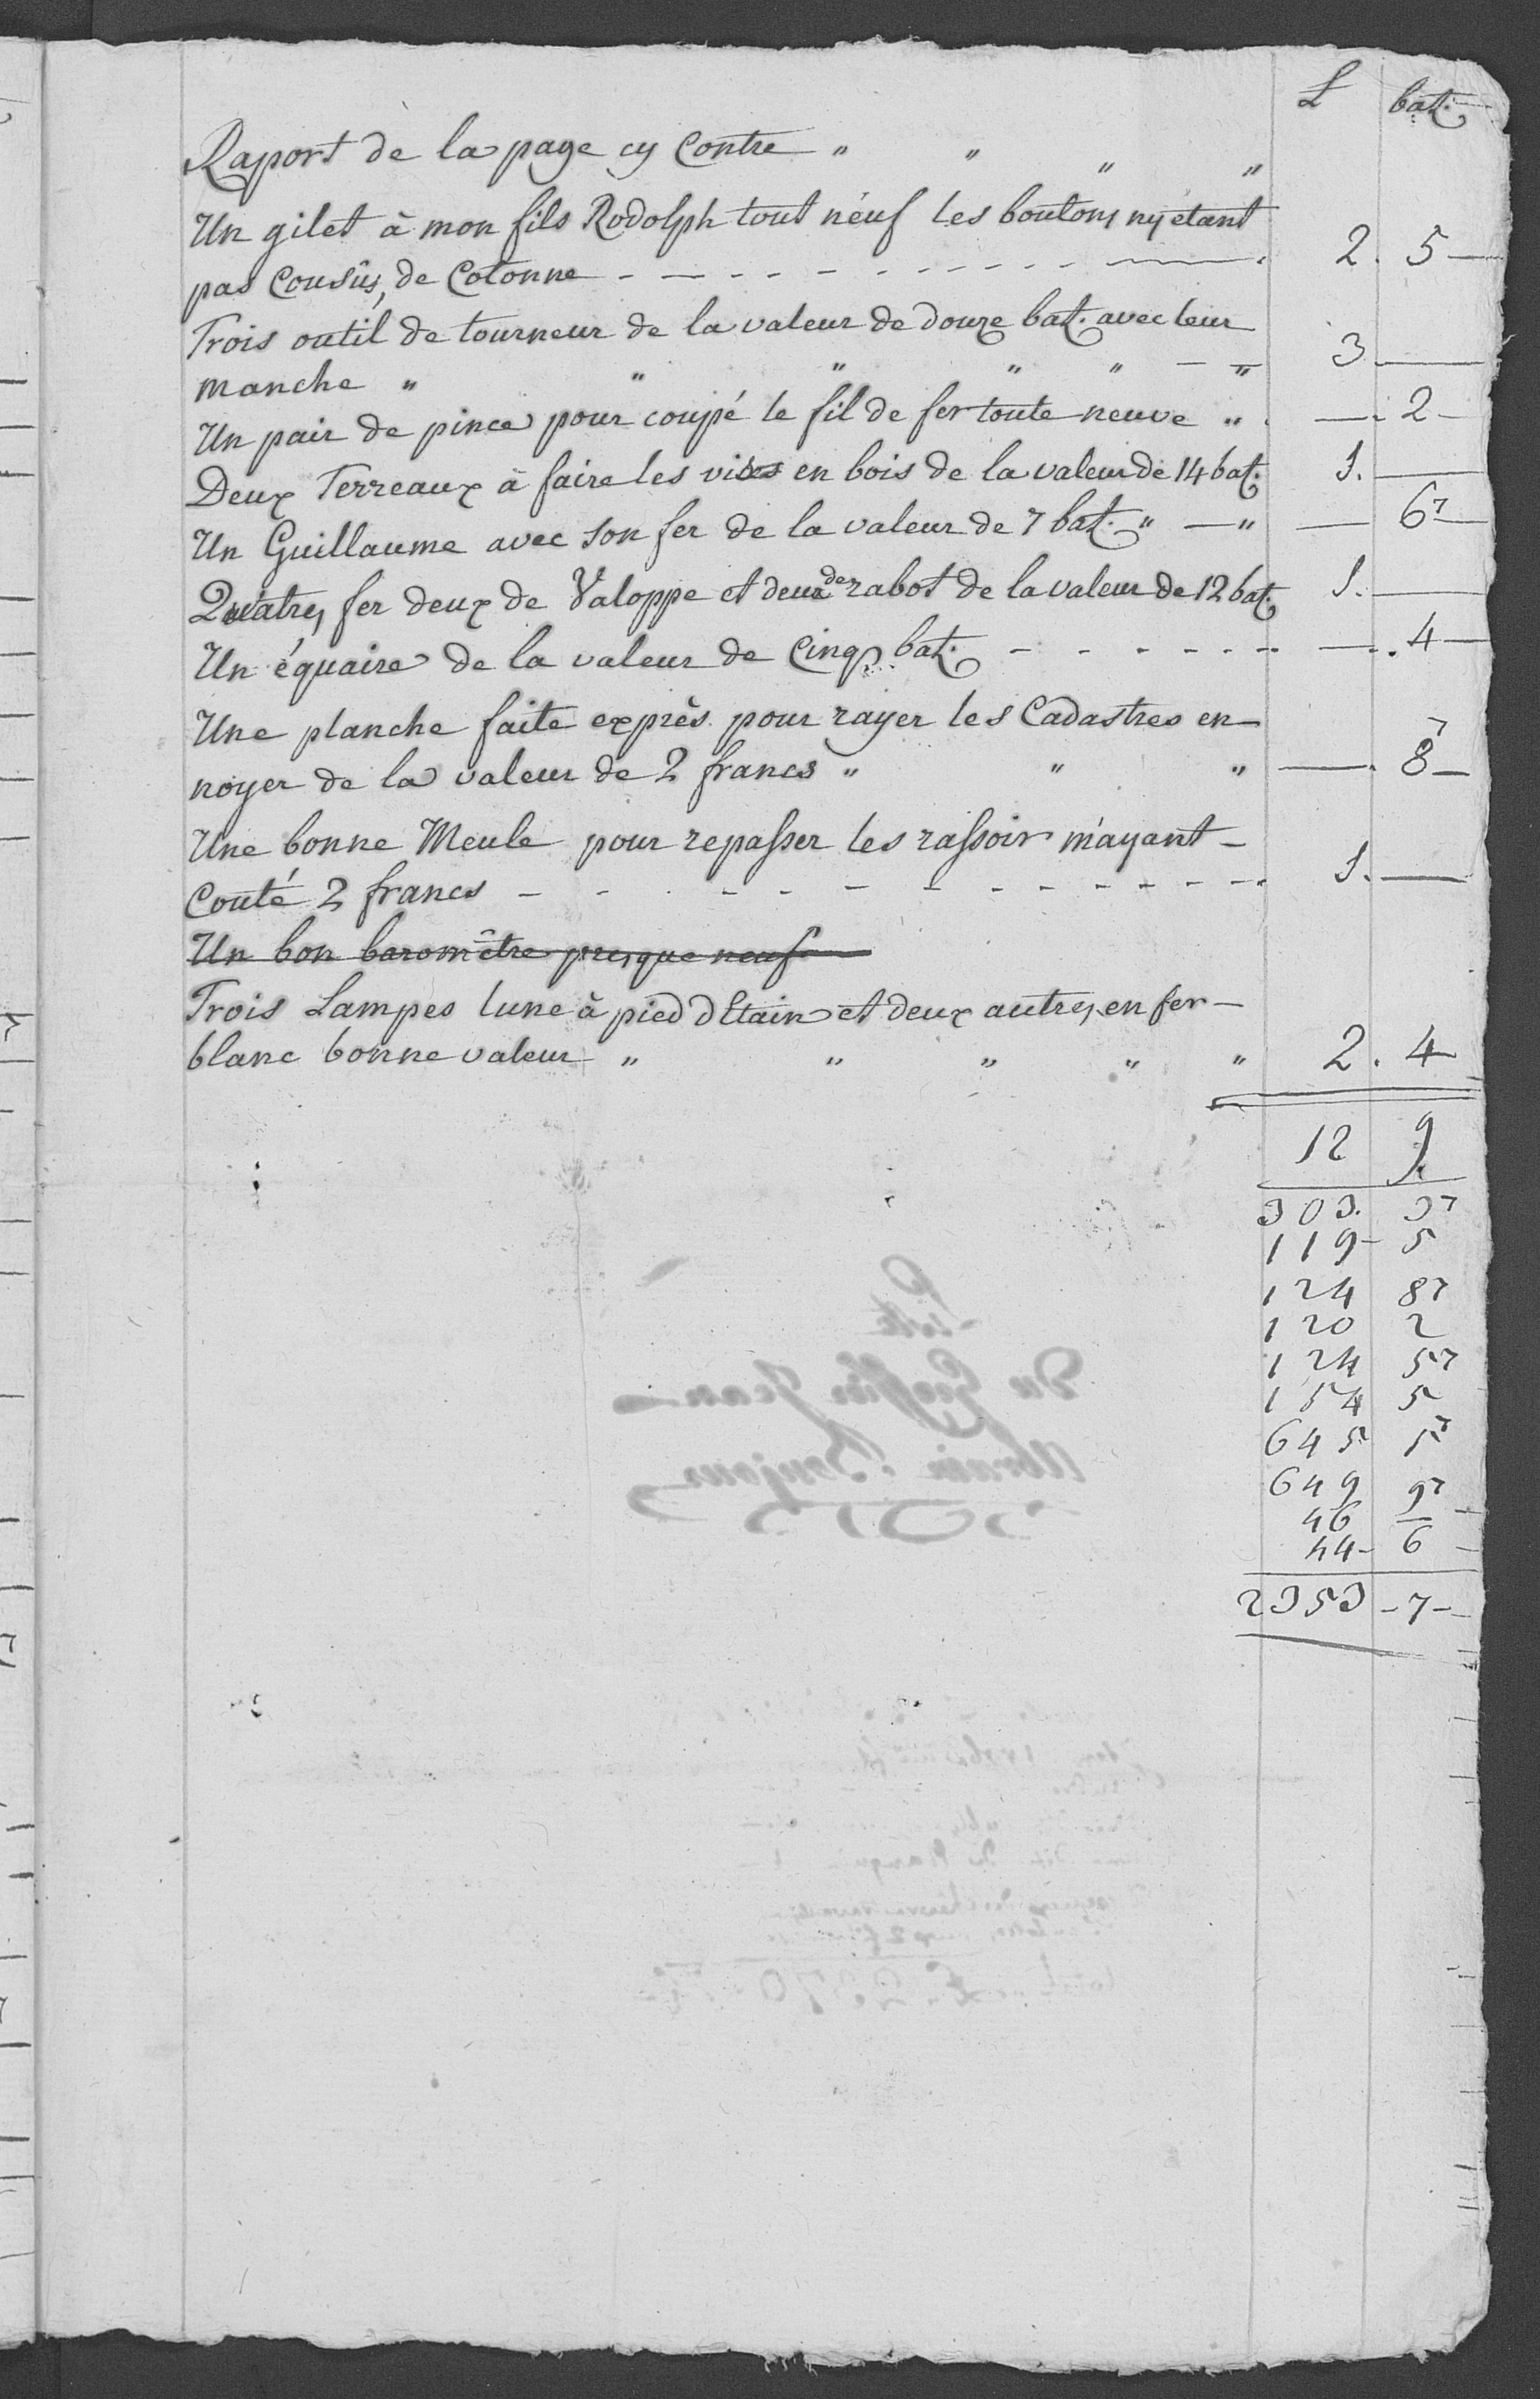 L bat.
Raport de la page cy Contre " " " "
Un gilet à mon fils Rodolph tout neuf les boutons ny étant
pas Cousûs, de Cotonne - - - - - - - - - - 2. 5 —
Trois outil de tourneur de la valeur de douze bat. avec leur
manche " " " " " — " 3. —
Un pair de pince pour coupé le fil de fer toute neuve " . —. 2 —
Deux Terreaux à faire les vises en bois de la valeur de 14 bat. 1. —
Un Guillaume avec son fer de la valeur de 7 bat. " — " — 6 7
Quatres fer deux de Valoppe et deux de rabot de la valeur de 12 bat. 1. —
Un équaire de la valeur de Cinq bat. - - - - - - - —. 4 —
Une planche faite exprès pour rayer les Cadastres en —
noyer de la valeur de 2 francs " " " —. 8 7 —
Une bonne Meule pour repasser les rassoir m'ayant —
Couté 2 francs - - - - - - - - - - - - 1. —
Un bon baromêtre presque neuf
Trois Lampes lune à pied d'Etain et deux autres en fer —
blanc bonne valeur " " " " " 2. 4
12 9.
303. 3 7
119 - 5
124 8 7
120 2
124 5 7
154 5
645 5 7
649 9 7
46 —
44 - 6
2353 - 7 -
Liste
Du Greffier Jean
Abram Bonjour